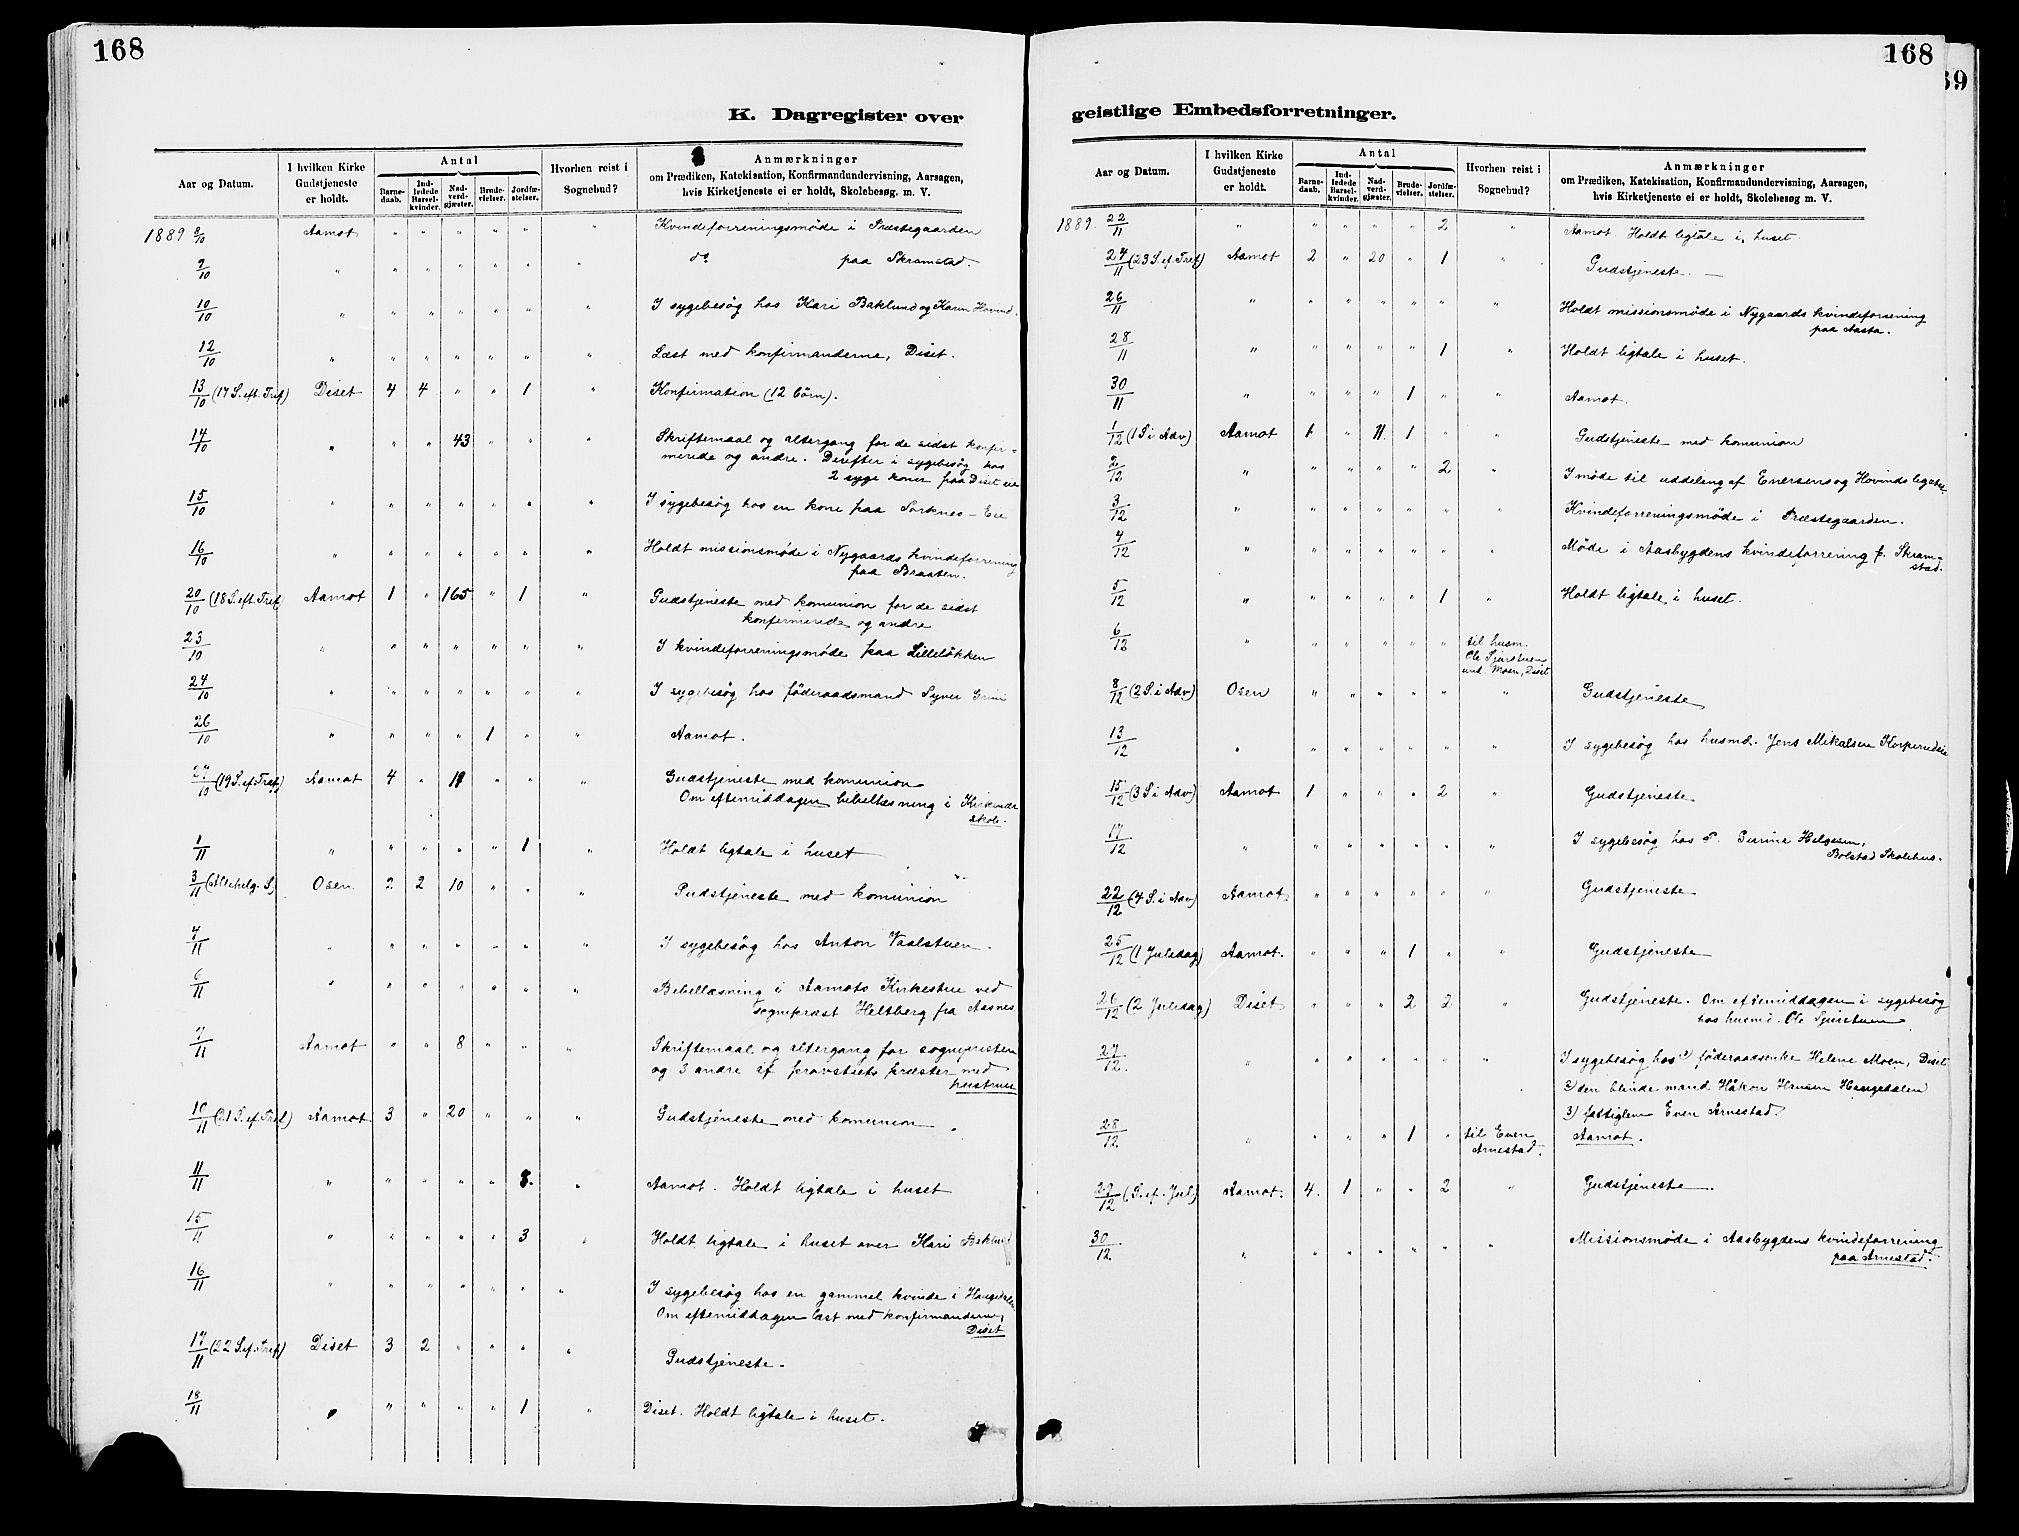 168
K. Dagregister over
Aar og Datum.
I hvilken Kirke Gudstjeneste er holdt.
Antal
Barne-daab.
Ind-ledede Barsel-kvinder.
Nad-verd-gjæster.
Brude-vielser.
Jordfæ-stelser.
Hvorhen reist i Sognebud?
Anmærkninger
om Prædiken, Katekisation, Konfirmandundervisning, Aarsagen,
hvis Kirketjeneste ei er holdt, Skolebesøg. m. V.
1889 8/10 Aamot " " " " " " Kvindeforreningsmøde i Præstegaarden
9/10 " " " " " " " do paa Skramstad.
10/10 " " " " " " " I sygebesøg hos Kari Baklund og Karen Hovind.
12/10 " " " " " " " Læst med konfirmanderne, Diset.
13/10 (17 S. eft. Tref) Diset 4 4 " " 1 " Konfirmation (12 børn).
14/10 " " " 43 " " " Skriftemaal og altergang for de sidst konfir-
merede og andre. Derefter i sygebesøg hos
2 syge koner paa Diset eie
15/10 " " " " " " " I sygebesøg hos en kone paa Sorknes-Eie
16/10 " " " " " " " Holdt missionsmøde i Nygaards kvindeforrening
paa Braaten.
20/10 (18 S. eft. Tref) Aamot 1 " 165 " 1 " Gudstjeneste med komunion for de sidst
konfirmerede og andre
23/10 " " " " " " " I kvindeforreningsmøde paa Lilleløkken
24/10 " " " " " " " I sygebesøg hos føderaadsmand Syver
26/10 " " " " 1 " " Aamot.
27/10 (19 S. ef. Tref) Aamot 4 " " " " Gudstjeneste med komunion
Om eftemiddagen bibellæsning i
skole.
1/11 " " " " " 1 " Holdt ligtale i huset
3/11 (Allehelg. S) Osen 2 2 10 " " " Gudstjeneste med komunion
4/11 " " " " " " " I sygebesøg hos Anton Vaalstuen.
6/11 " " " " " " " Bibellæsning i Aamots Kirkestue ved
sogneprest Heltberg fra Aasnes
7/11 Aamot " " 8 " " " Skriftemaal og altergang for sognepresten
og 3 andre af provstiets præster med
hustruer
10/11 (21 S. ef. Tref) Aamot 3 " 20 " " " Gudstjeneste med komunion
11/11 " " " " " 8. " Aamot. Holdt ligtale i huset
15/11 " " " " " 3 " Holdt ligtale i huset over Kari Baklund
16/11 " " " " " " " I sygebesøg hos en gammel kvinde i
Om eftemiddagen læst med konfirmanderne,
Diset
17/11 (22 S. ef. Tref) Diset 3 2 " " " " Gudstjeneste.
18/11 " " " " " 1 " Diset. Holdt ligtale i huset.
168
69
geistlige Embedsforretninger.
Aar og Datum.
I hvilken Kirke Gudstjeneste er holdt.
Antal
Barne-daab.
Ind-ledede Barsel-kvinder.
Nad-verd-gjæster.
Brude-vielser.
Jordfæ-stelser.
Hvorhen reist i Sognebud?
Anmærkninger
om Prædiken, Katekisation, Konfirmandundervisning, Aarsagen,
hvis Kirketjeneste ei er holdt, Skolebesøg m. V.
1889. 22/11 " " " " " 2 " Aamot. Holdt ligtale i huset.
24/11 (23 S. ef. Tref) Aamot 2 " 20 " 1 " Gudstjeneste. —
26/11 " " " " " " " Holdt missionsmøde i Nygaards kvindeforening
paa Aasta.
28/11 " " " " " 1 " Holdt ligtale i huset.
30/11 " " " " 1 " " Aamot.
1/12 (1 S i Adv) Aamot 1 " 11 1 " " Gudstjeneste med komunion
2/12 " " " " " 2 " I møde til uddeling af Enersens og Hovinds legater.
3/12 " " " " " " " Kvindeforreningsmøde i Præstegaarden.
4/12 " " " " " " " Møde i Aasbygdens kvindeforrening p. Skram-
stad.
5/12 " " " " " 1 " Holdt ligtale i huset.
6/12 " " " " " " til husm.
Ole Sjurstuen
und. Moen, Diset
8/12 (2 S. i Adv) Osen " " " " " " Gudstjeneste
13/12 " " " " " " " I sygebesøg hos husmd. Jens Mikalsen
15/12 (3 S i Adv) Aamot 1 " " " 2 " Gudstjeneste
17/12 " " " " " " " I sygebesøg hos P. Gunine Helgesen,
Bolstad Skolehus.
22/12 (4 S. i Adv) Aamot " " " " " " Gudstjeneste
25/12 (1 Juledag) Aamot. " " " 1 " " Gudstjeneste
26/12 (2 Juledag) Diset " " " 2 2 " Gudstjeneste. Om eftemiddagen i sygebesøg
hos husmd. Ole Sjurstuen
27/12. " " " " " " " I sygebesøg hos 1) føderaadsenke Helene Moen, Diset
2) den blinde mand Håkon Hansen Haugedalen
3) fattiglem Even Arnestad.
28/12 " " " " 1 " til Even
Arnestad. Aamot.
29/12 (S. ef. Jul) Aamot. 4. 1 " " 2 " Gudstjeneste.
30/12 " " " " " " " Missionsmøde i Aasbygdens kvindeforrening
paa Arnestad.